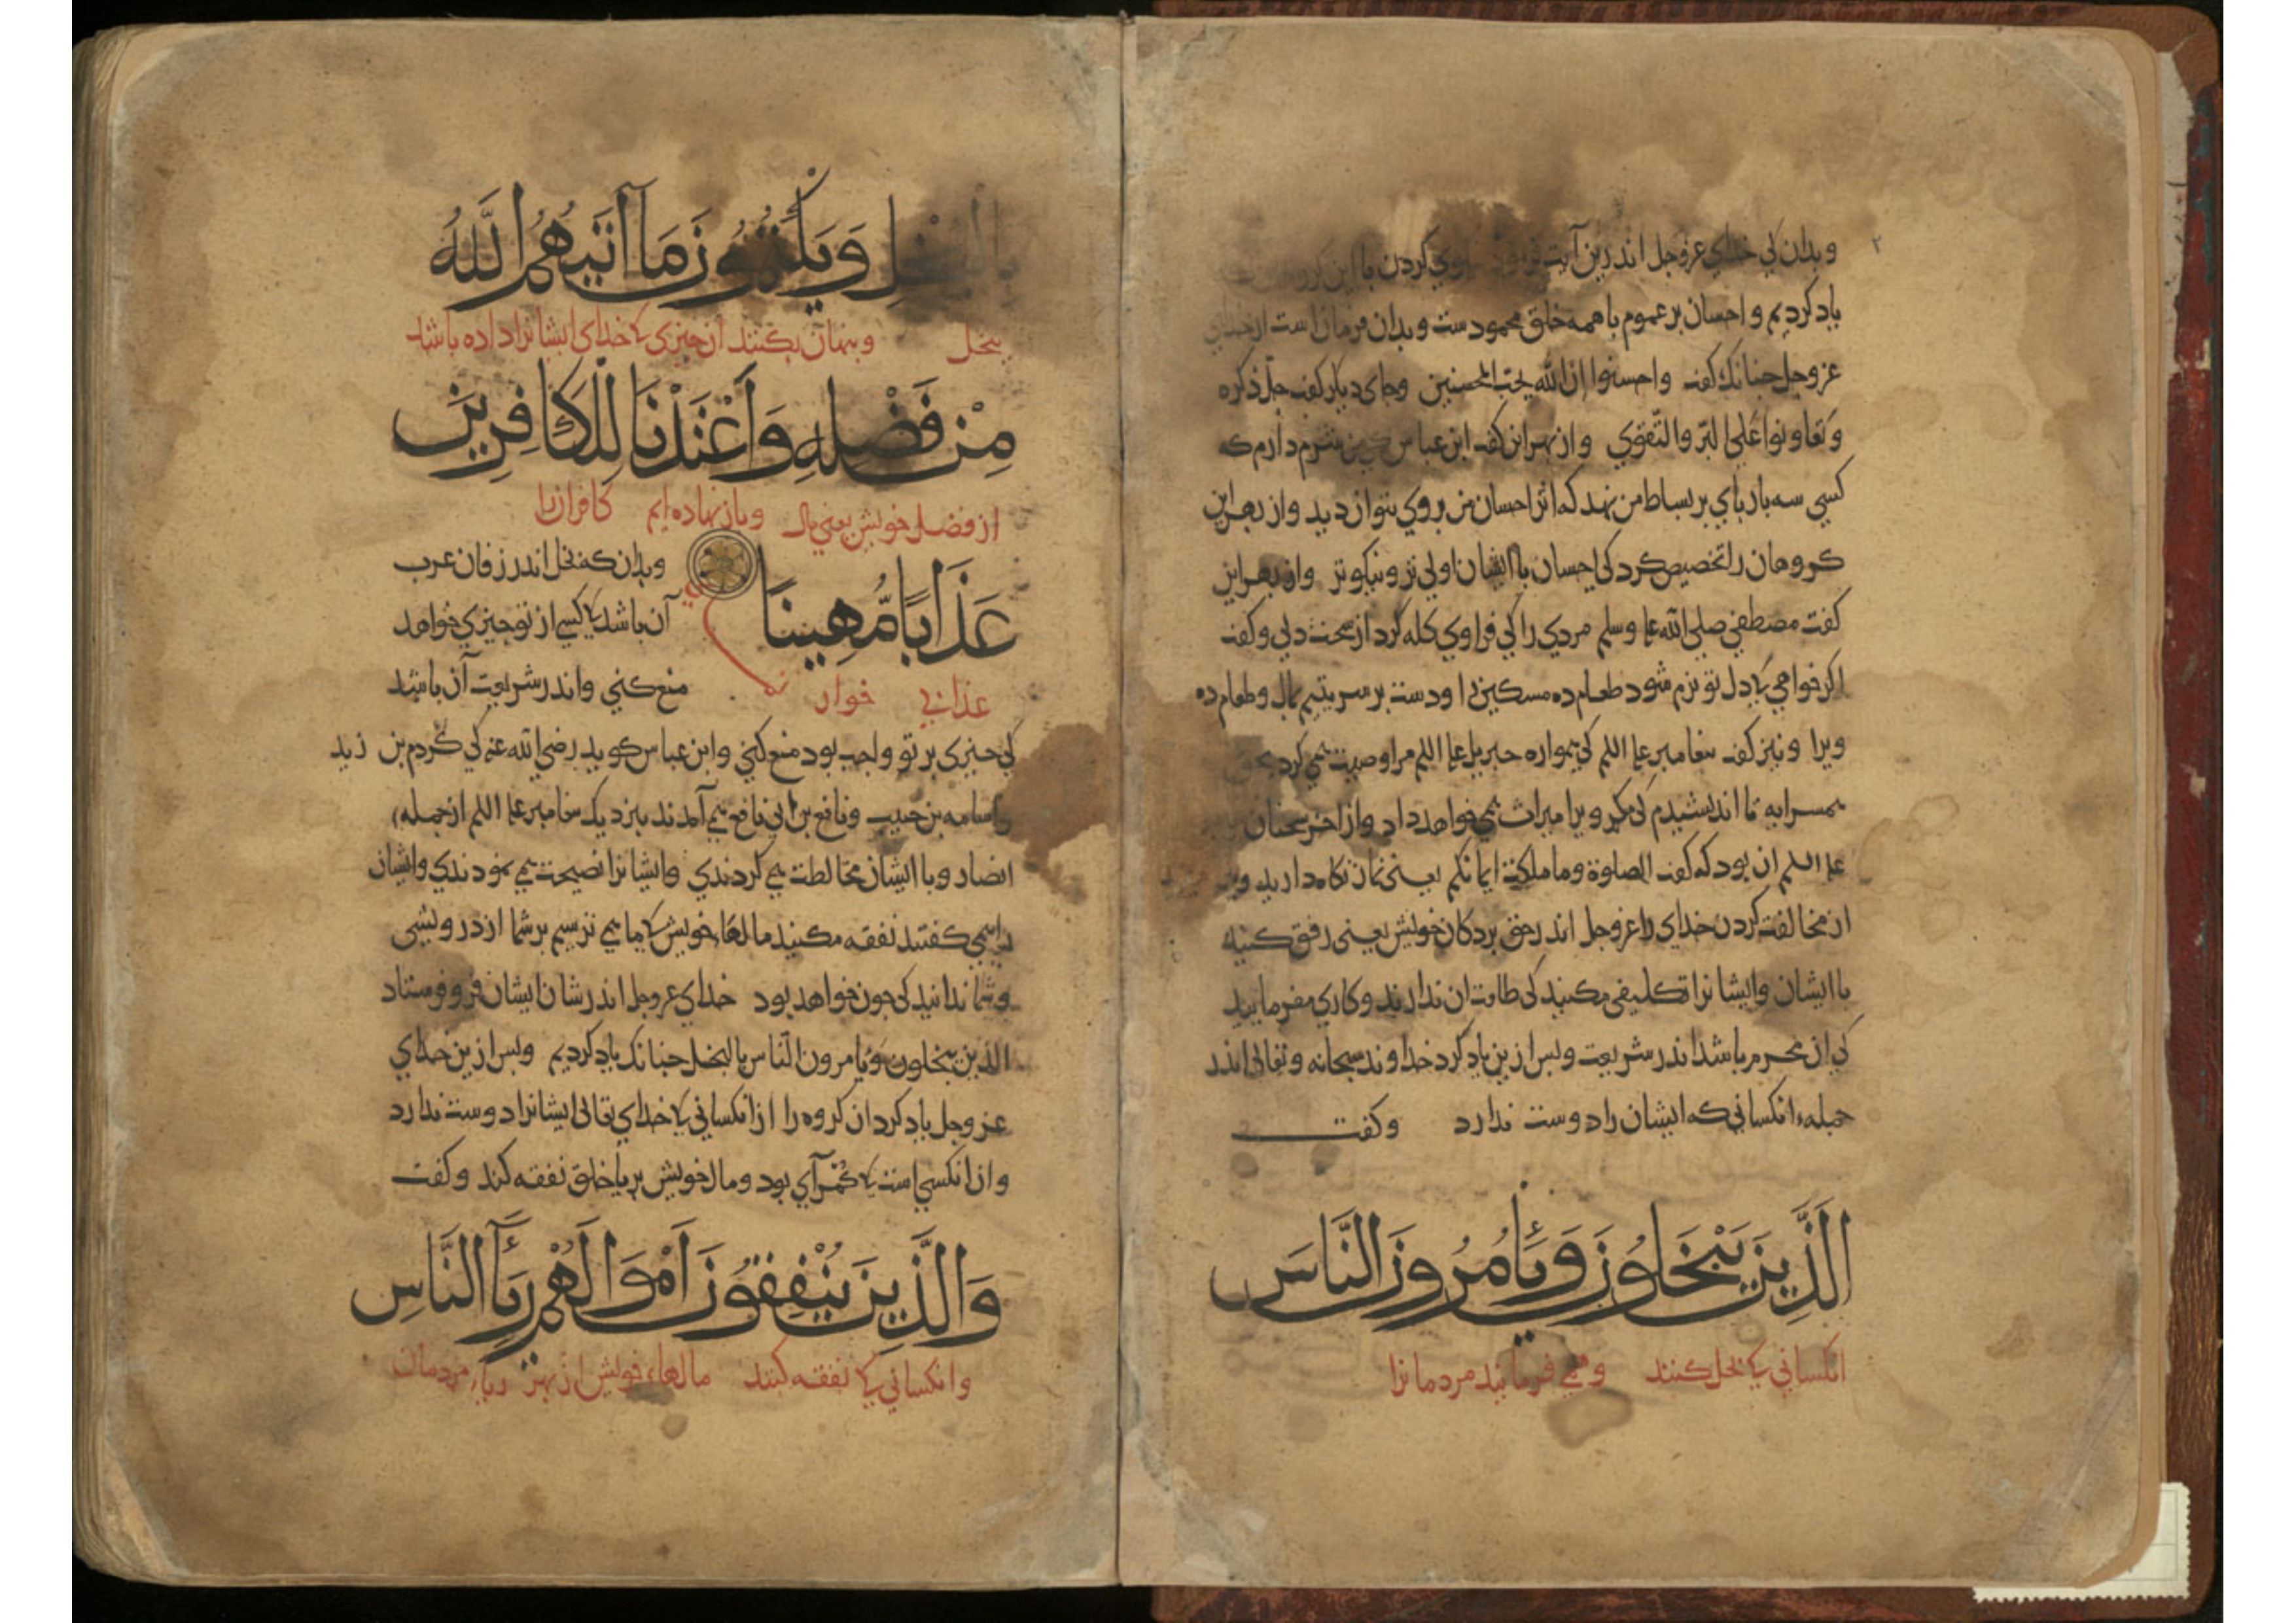 وبدان کی خدای عزوجل اندرین آیت کردن با این
یاد کردیم و احسان بر عموم با همه خلق محمودست و بدان فرمان است از خدای
عزوجل جنانک کفت واحسنوا ان الله یحب المحسنین وجای دیکر کفت جل ذکره
وتعاونوا علی البر والتقوی واز بهر این کفت ابن عباس من شرم دارم که
کسی سه بار بای بر بساط من نهد که اثر احسان من بر وی نتوان دید واز بهر این
کروهان را تخصیص کرد کی احسان با ایشان اولی تر ونیکوتر واز بهر این
کفت مصطفی صلی الله علیه وسلم مردی را کی فرا وی کله کرد از سخت دلی وکفت
اکر خواهی کی دل تو نرم شود طعام ده مسکین را ودست بر سر یتیم مال وطعام ده
ویرا ونیز کفت بیغامبر علیه السلم کی همواره جبریل علیه السلم مرا وصیت همی کرد
همسرایه تا اندیشیدم کی مکر ویرا میراث همی خواهد داد واز اخر سخنان
علیه السلم ان بود که کفت الصلوة وما ملکت ایمانکم یعنی نماز نکاه دارید
از مخالفت کردن خدای را عزوجل اندر حق بردکان خویش یعنی رفق کنید
با ایشان وایشانرا تکلیفی مکنید کی طاقت ان ندارند وکاری مفرمایید
کی ان محرم باشد اندر شریعت وبس ازین یاد کرد خداوند سبحانه وتعالی اندر
جمله انکسانی که ایشان را دوست ندارد وکفت
الَّذِينَ يَبْخَلُونَ وَيَأْمُرُونَ النَّاسَ
انکسانی کی بخل کنند وهمی فرمایند مردمانرا
بِالْبُخْلِ وَيَكْتُمُونَ مَا آتَيهُمُ اللَّهُ
بخل وبنهان بکنند ان جیزی کی خدای ایشانرا داده باشد
مِنْ فَضْلِهِ وَأَعْتَدْنَا لِلْكَافِرِينَ
از فضل خویش یعنی مال وباز نهاده ایم کافرانرا
عَذَابًا مُّهِينًا
عذابی خوار
وبدان که بخل اندر زفان عرب
آن باشد کی کسی از تو جیزی خواهد
منع کنی واندر شریعت آن باشد
کی جیزی بر تو واجب بود منع کنی وابن عباس کوید رضی الله عنه کی کردم بن زید
واسامه بن حبیب ونافع بن ابی نافع همی آمدند بنزدیک بیغامبر علیه السلم از جمله
انصار وبا ایشان مخالطت همی کردندی وایشانرا نصیحت همی نمودندی وایشان
را همی کفتند نفقه مکنید مالهاء خویش کی ما همی ترسیم بر شما از درویشی
وشما ندانید کی جون خواهد بود خدای عزوجل اندر شان ایشان فرو فرستاد
الذین یبخلون ویامرون الناس بالبخل جنانک یاد کردیم وبس ازین خدای
عزوجل یاد کرد ان کروه را از انکسانی کی خدای تعالی ایشانرا دوست ندارد
وان انکسی است کی بود ومال خویش بریا خلق نفقه کند وکفت
وَالَّذِينَ يُنْفِقُونَ أَمْوَالَهُمْ رِئَآءَ النَّاسِ
وانکسانی کی نفقه کنند مالهاء خویش از بهر ریاء مردمان